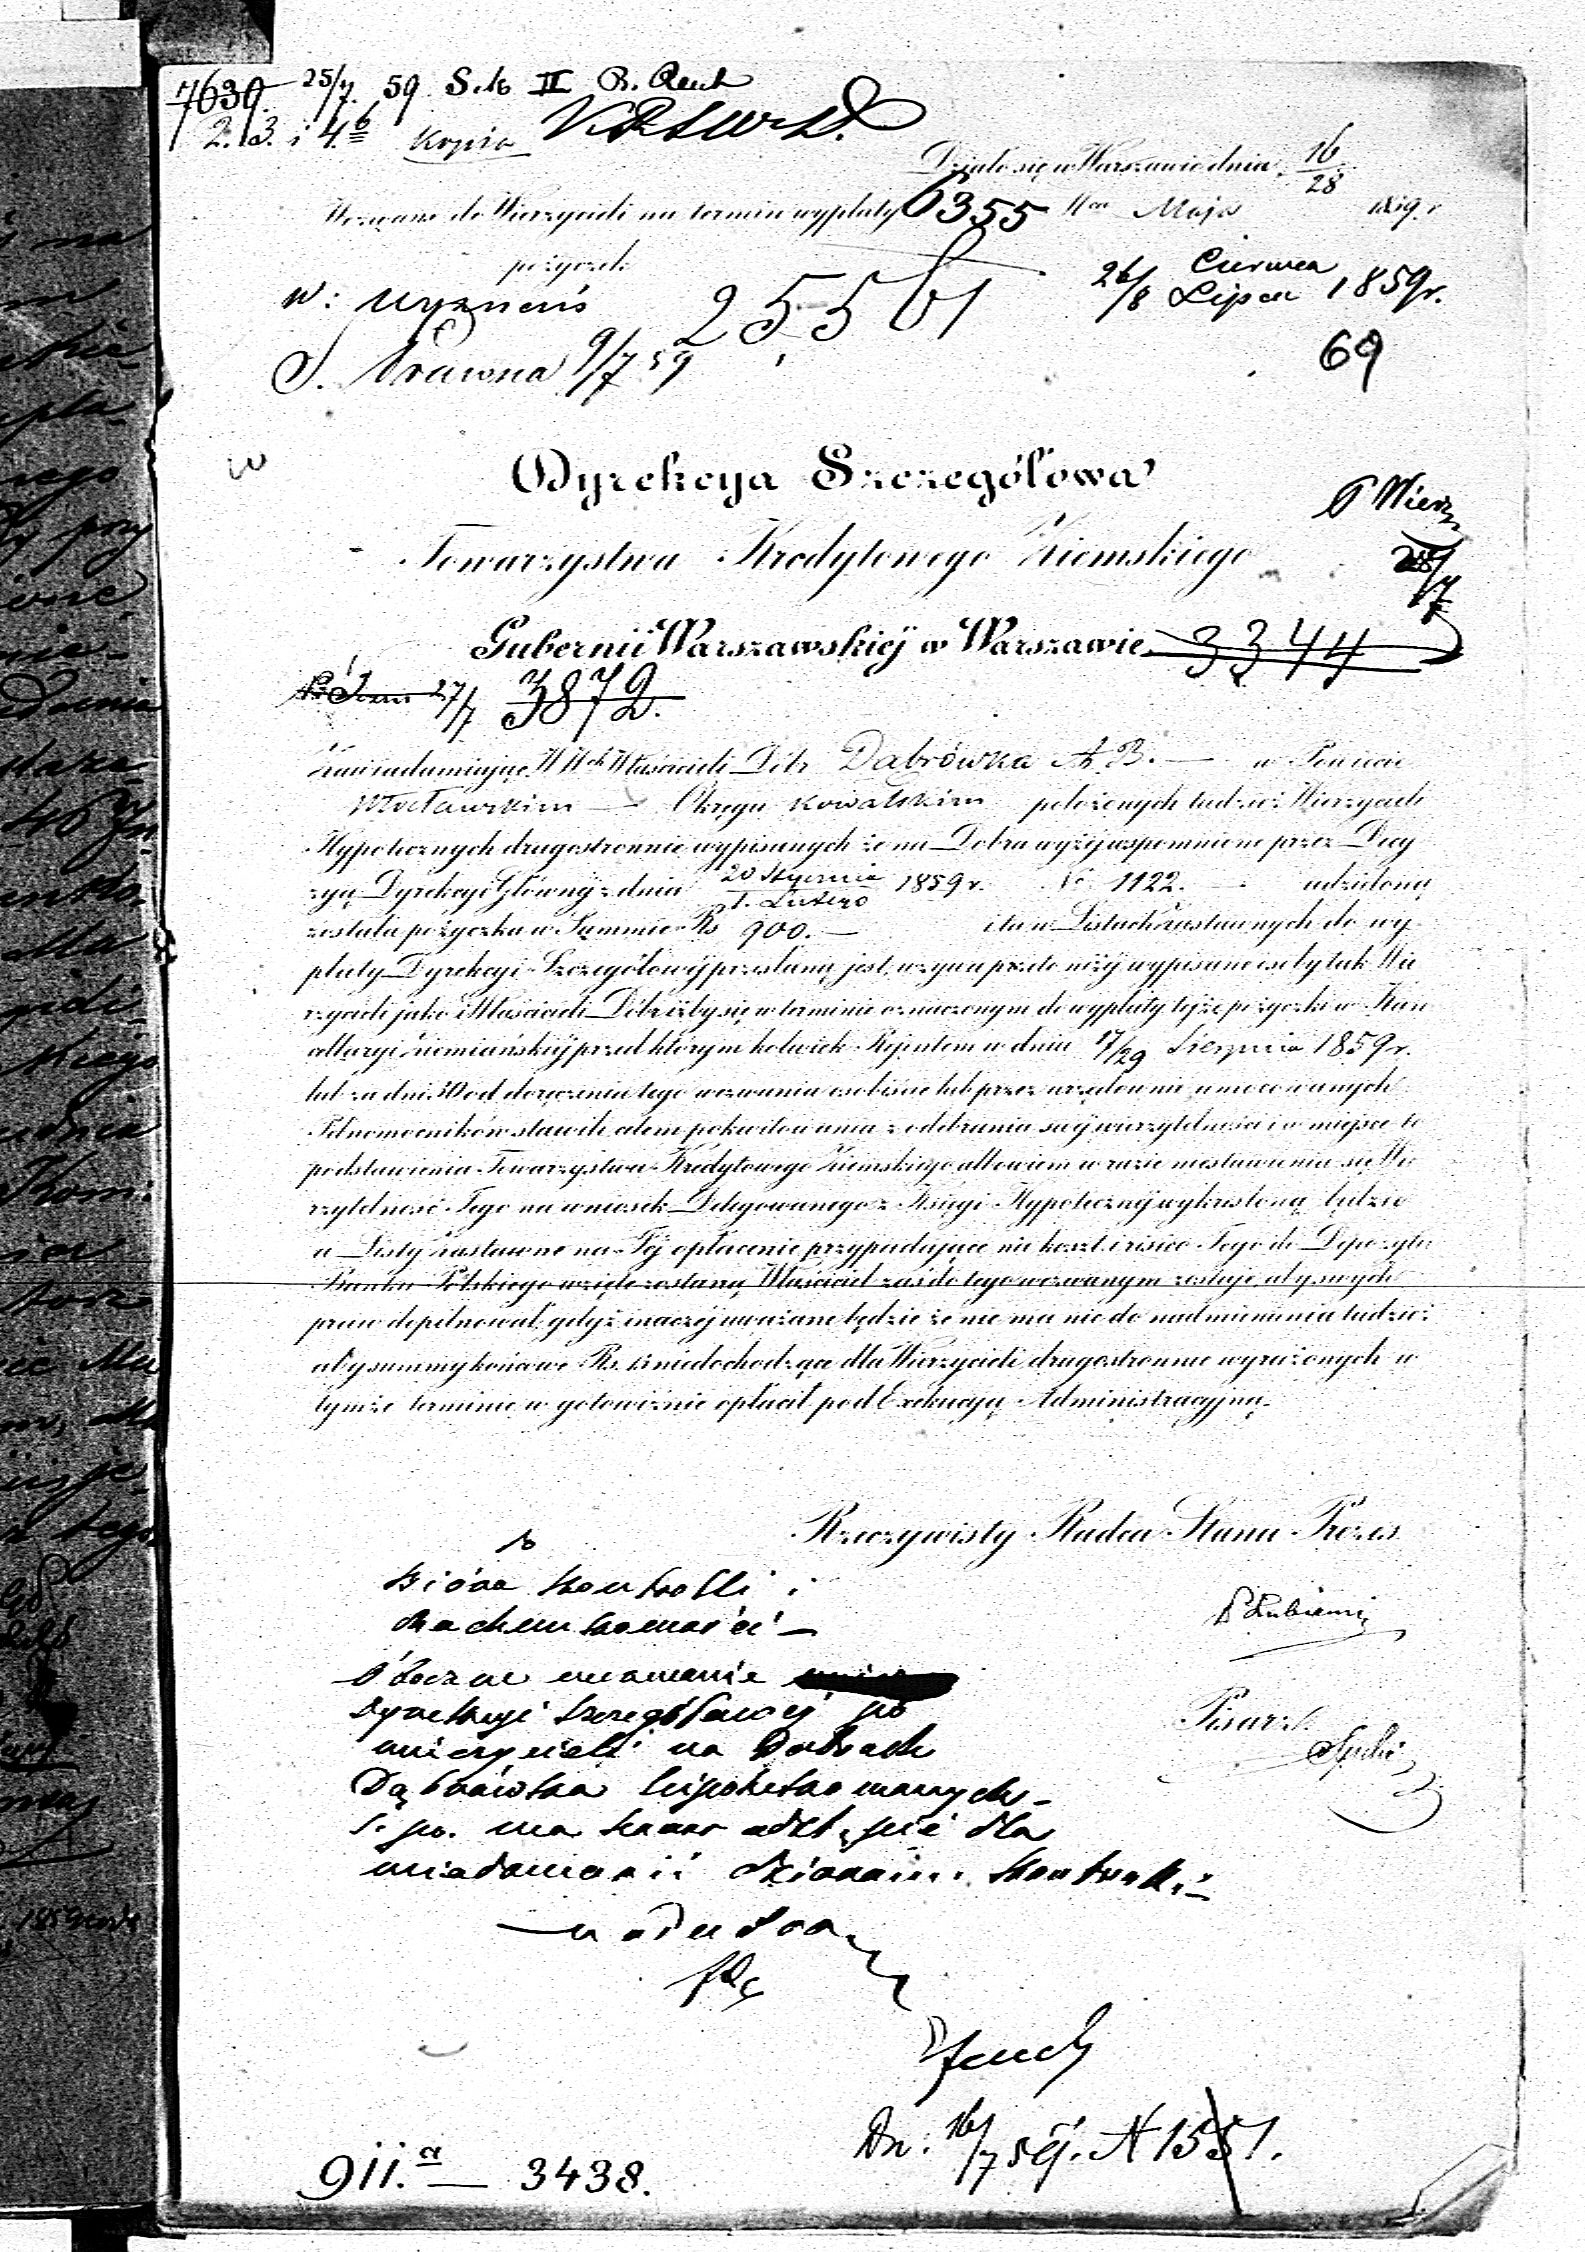 7630. 25/7. 59 S. K. II
2. 3. i 4. Kopia
Działo się w Warszawie dnia 16/28
Wezwanie do Wierzycieli na termin wypłaty 6355 Maja 1859 r.
pożyczek
25561 26/8 Czerwca/Lipca 1859 r.
S. Prawna 9/7 59
69
Dyrekcya Szczegółowa
P Wierz
Towarzystwa Kredytowego Ziemskiego
28/7
Gubernii Warszawskiéj w Warszawie 3344
27/7 3872.
Zawiadamiając WWch Właścicieli Dóbr Dąbrówka A. B. — w Powiecie
Włocławskim — Okręgu Kowalskim położonych tudzież Wierzycieli
Hypotecznych drugostronnie wypisanych że na Dobra wyżéj wspomnione przez Decy
zyą Dyrekcyi Głównéj z dnia 20 Stycznia/1. Lutego 1859 r. No 1122. udzieloną
została pożyczka w Summie Rs 900. — i ta w Listach Zastawnych do wy
płaty Dyrekcyi Szczegółowéj przesłaną jest, wzywa przeto niżéj wypisane osoby tak Wie
rzycieli jako i Właścicieli Dóbr iżby się w terminie oznaczonym do wypłaty tejże pożyczki w Kan
cellaryi Ziemiańskiéj przed którym kolwiek Rejentem w dniu 17/29 Sierpnia 1859 r.
lub za dni 30 od doręczenia tego wezwania osobiście lub przez urzędownie umocowanych
Pełnomocników stawili celem pokwitowania z odebrania swéj wierzytelności i w miejsce to
podstawienia Towarzystwa Kredytowego Ziemskiego, albowiem w razie niestawienia się Wie
rzytelność Jego na wniosek Delegowanego z Księgi Hypotecznéj wykreśloną będzie
a Listy zastawne na Jéj opłacenie przypadające na koszt i risico Jego do Depozytu
Banku Polskiego wzięte zostaną, Właściciel zaś do tego wezwanym zostaje, aby swych
praw dopilnował, gdyż inaczéj uważane będzie że nie ma nic do nadmienienia tudzież
aby summy końcowe Rs. 15 niedochodzące dla Wierzycieli drugostronnie wyrażonych w
tymże terminie w gotowiźnie opłacił pod Exekucyą Administracyjną.
Rzeczywisty Radca Stanu Prezes
do
Bióra Kontrolli i
Rachunkowości —
P Łubieński
Oboczne wezwanie
Dyrekcyi Szczegółowéj do
Pisarz
wierzycieli na Dobrach
Dąbrówka hipotekowanych
S. pr. ma honor odstąpić dla
wiadomości Biórowi Kontrolli
Dn: 16/7 59 r. N 1551.
911.a — 3438.